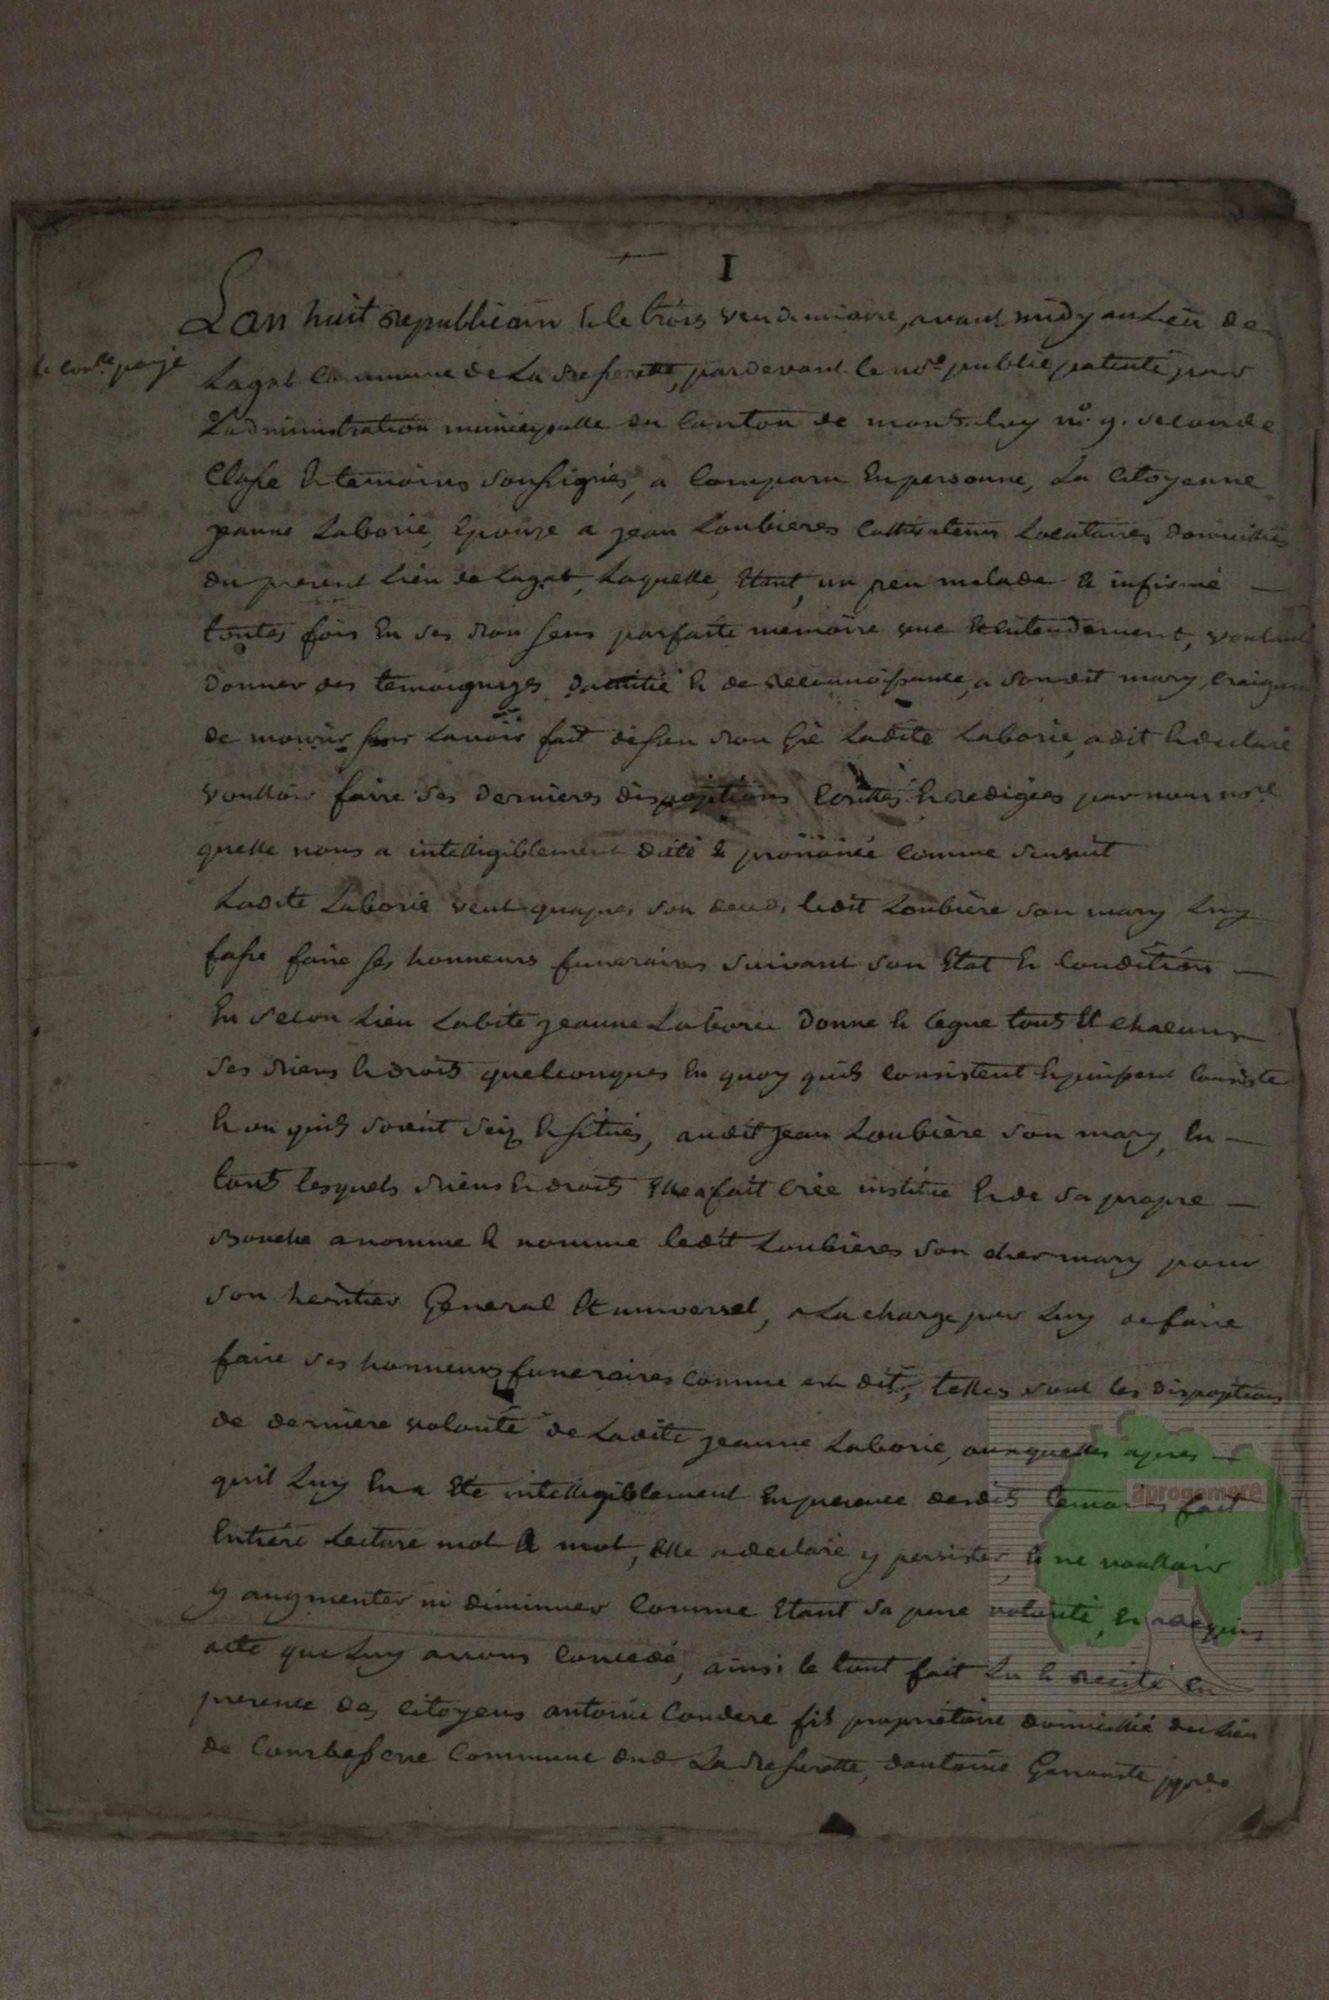 I
Lan huit republicain & le trois vendemiaire, avant midy au Lieu de
le con.lle payé
Lagat Commune de La Besserette, pardevant le no.re public patenté pour
L'administration municipalle du Canton de monts.luy n.o 9. seconde
Classe & temoins soussignés, a Comparu En personne, La Citoyenne
jeanne Laborie, Epouze a jean Loubieres Cultivateurs Locataires domiciliés
du present Lieu de Lagat, Laquelle, Etant, un peu malade & infirme
toutes fois En ses Bon sens parfaite memoire vue & Entendement, voulant
donner des temoignages damitié & de Reconnoissance, a sondit mary, Craignant
de mourir sans Lavoir fait de son Bon gré Ladite Laborie, a dit & declaré
voulloir faire ses dernieres dispositions Ecrittes & Redigées par nous no.re
quelle nous a intelligiblement dicté & prononcé Comme sensuit
Ladite Laborie veut qu'apres son deces, ledit Loubière son mary Luy
fasse faire ses honneurs funeraires suivant son Etat & Condition
En secon Lieu Ladite jeanne Laborie donne & legue touts Et chacuns
ses Biens & droits quelconques En quoy quils Consistent & puissent Consiste
& ou quils soient seiz & situés, audit jean Loubière son mary, En
touts lesquels Biens & droits Elle a fait Crée institue & de sa propre
Bouche a nommé & nomme ledit Loubières son cher mary pour
son heritier General Et universel, a La charge par Luy de faire
faire ses honneurs funeraires Comme est dit, telles sont les dispositions
de derniere volonté de Ladite jeanne Laborie, auxquelles apres
quil Luy En a Ete intelligiblement En presence desdits temoins fait
Entiere Lecture mot A mot, Elle a declaré y persister & ne voulloir
y augmenter ni diminuer Comme Etant sa pure volonté, & Requis
acte que Luy avons Concedé, ainsi le tout fait Lu & Recité En
presence des Citoyens antoine Coudere fils proprietaire domicilié du Lieu
de Commune dud La Besserette, dantoine
aprogemere